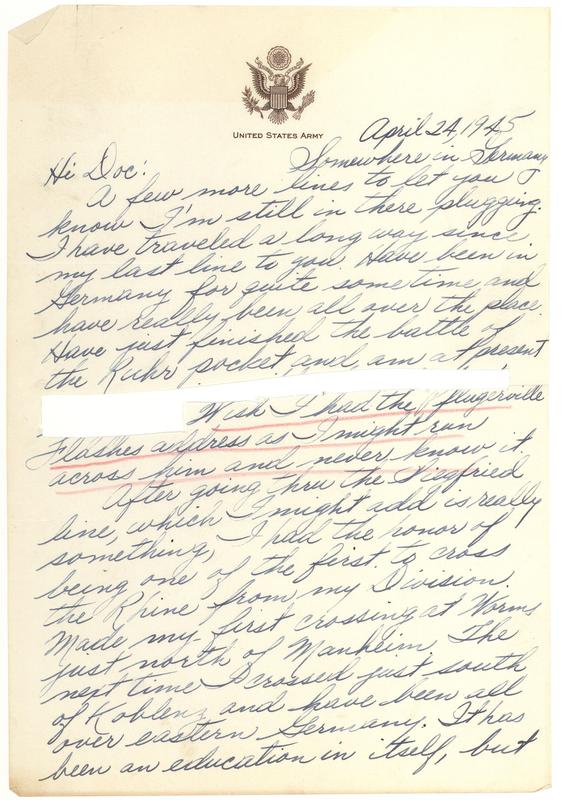 UNITED STATES ARMY
April 24, 1945
Somewhere in Germany
Hi Doc:
A few more lines to let you
know I'm still in there plugging.
I have traveled a long way since
my last line to you. Have been in
Germany for quite sometime, and
have really been all over the place.
Have just finished the battle of
the Ruhr pocket and, am at present
Wish I had the Pflugerville
Flashes address as I might run
across him and never know it.
After going thru the Siegfried
line, which I might add is really
something, I had the honor of
being one of the first to cross
the Rhine from my Division.
Made my first crossing at Worms
just north of Manheim. The
next time I crossed just south
of Koblenz and have been all
over eastern Germany. It has
been an education in itself, but